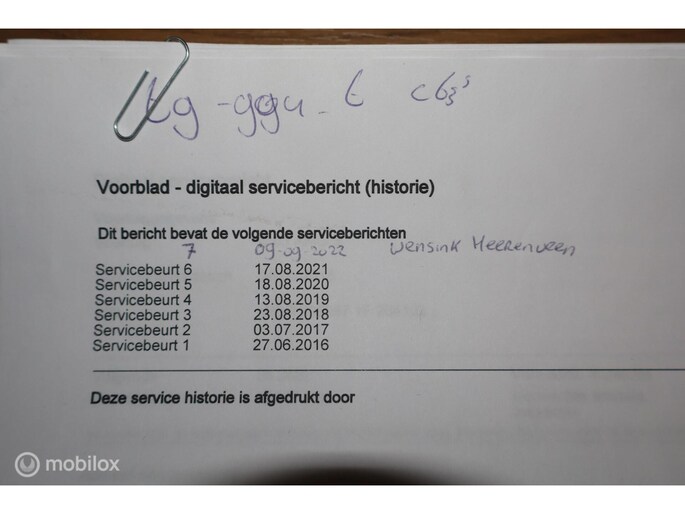 tg-ggu-t
Voorblad - digitaal servicebericht (historie)
Dit bericht bevat de volgende serviceberichten
7 09-09-2022 Wensink Heerenveen
Servicebeurt 6 17.08.2021
Servicebeurt 5 18.08.2020
Servicebeurt 4 13.08.2019
Servicebeurt 3 23.08.2018
Servicebeurt 2 03.07.2017
Servicebeurt 1 27.06.2016
Deze service historie is afgedrukt door
mobilox